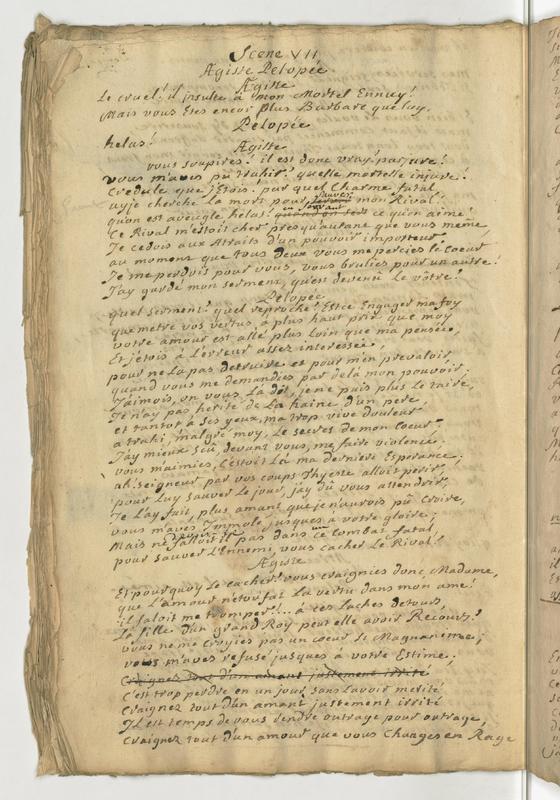 Scene VII
Ægiste Pelopée
Ægiste
Le cruel! il insulte à mon Mortel Ennuy!
Mais vous Etes encor plus Barbare que luy.
Pelopée
helas!
Ægiste
vous soupires! il est donc vray! parjure!
vous m'avés pu trahir! quelle mortelle injure!
Credule que j'etois! par quel Charme fatal
ay je cherché la mort pour sauver mon Rival!
quon est aveugle helas! en servant ce qu'on aime!
Ce Rival m'estoit cher presqu'autant que vous meme,
Je cedois aux Atraits d'un pouvoir imposteur
au moment que tous deux vous me perciés le Coeur
Je me perdois pour vous, vous bruliés pour un autre!
J'ay gardé mon serment, qu'est devenu le vôtre!
Pelopée
quel serment! quel reproche! Estce Engager ma foy
que metre vos vertus, a plus haut prix que moy
votre amour est allé plus Loin que ma pensée,
Et j'etois à L'erreur assez interessée,
pour ne La pas detruire et pour m'en prevaloir,
quand vous me demandiés par delà mon pouvoir;
J'aimois, on vous La dit, je ne puis plus Le taire,
Je n'ay pas herité de La haine d'un pere,
et tantot à ses yeux, ma trop vive douleur
a trahi, malgré moy, Le secret de mon Coeur;
J'ay mieux sçû, devant vous, me faire violence;
vous m'aimiés, C'estoit Là ma derniere Esperance;
ah! seigneur par vos coups Thyeste alloit perir,
pour Luy sauver Le jour, j'ay dû vous attendrir,
Je L'ay fait, plus amant que je n'aurois pû Croire,
vous m'avés Immolé jusques a votre gloire;
Mais ne falloit il pas dans ce Combat fatal,
pour sauver L'Ennemi, vous cacher Le Rival!
Ægiste
Et pourquoy Le cacher! vous craigniés donc, Madame,
que L'amour n'etoufat La vertu dans mon ame!
il faloit me tromper!... à ces Laches detours,
La fille d'un grand Roy peut elle avoir Recours!
vous ne me croyies pas un coeur se Magnanime;
vous m'avés refusé jusques à votre Estime;
Craignez tout d'un amant justement irrité
C'est trop perdre en un jour sans L'avoir merité
Craignez tout d'un amant justement irrité
Il est temps de vous rendre outrage pour outrage,
Craignez tout d'un amour que vous Changes en Rage